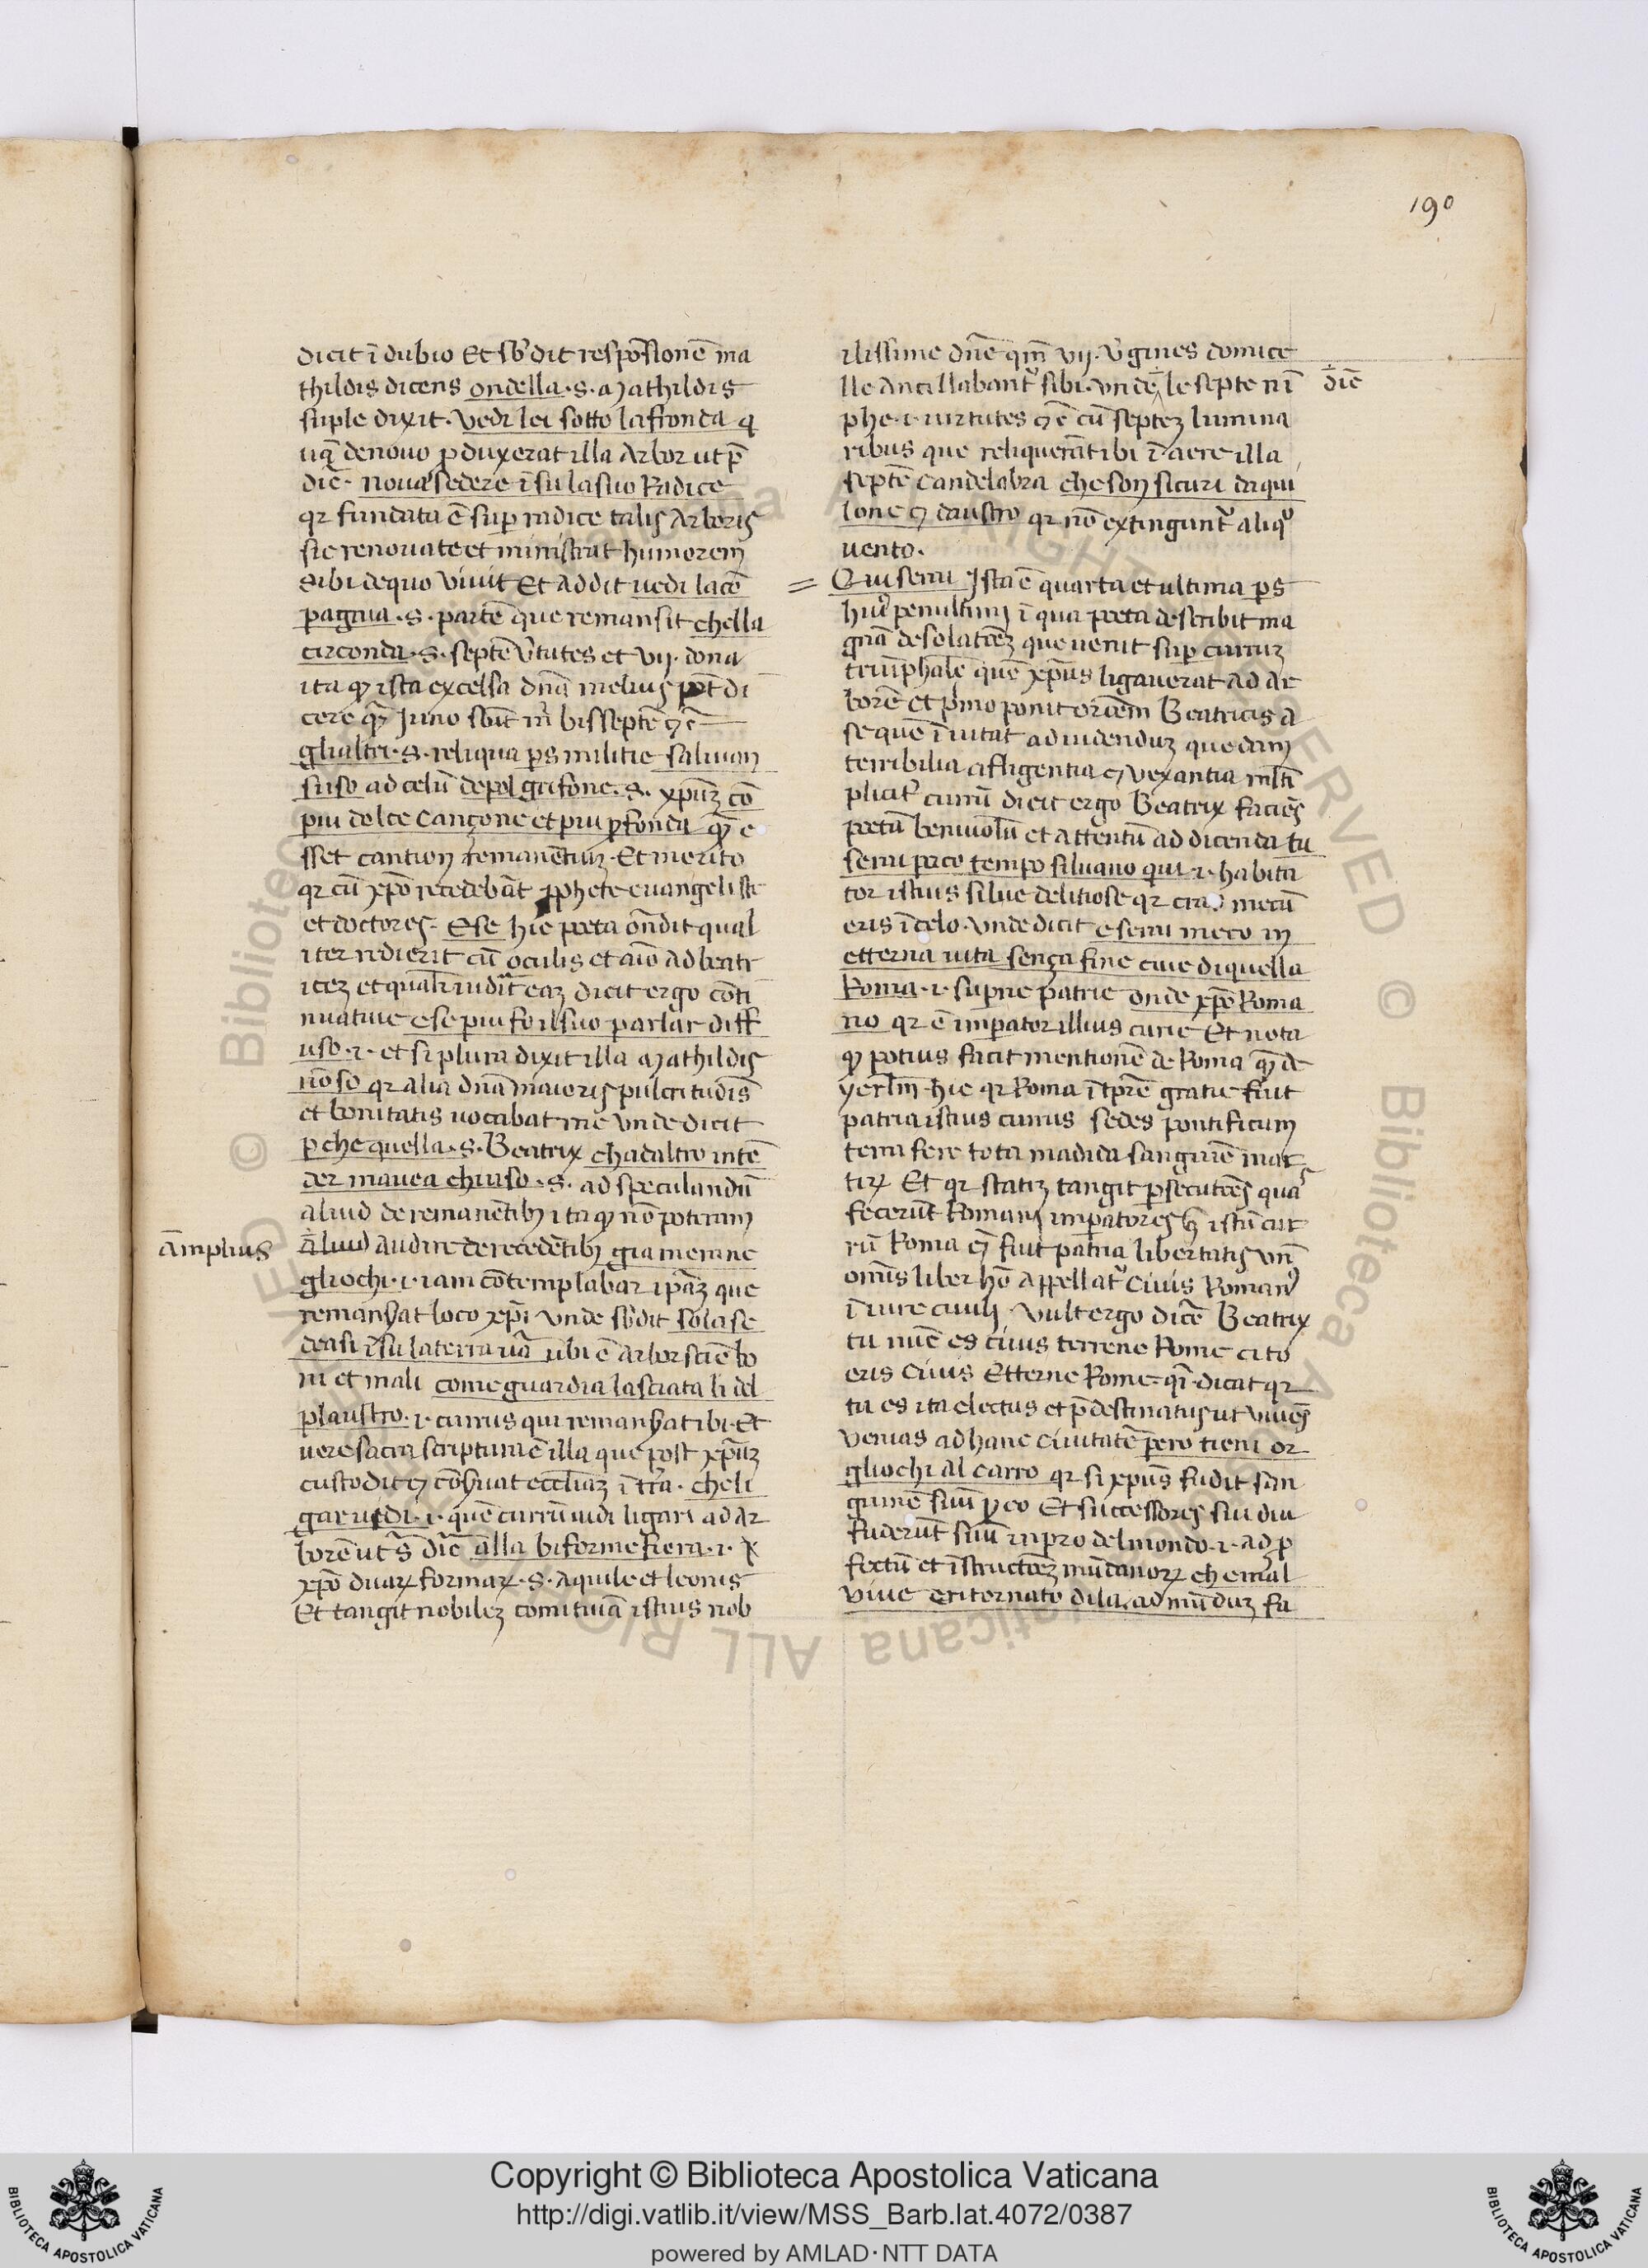 190
dicit ī dubio Et sb'dit respōsionē ma
thildis dicens ondella .s. Mathildis
suple dixit. Vedi lei sotto la fronda q
uā denovo pduxerat illa Arbor ut p̄
dic̄. nova sedere ī su la suo Radice
qr fundata ē sup radice talis Arboris
sic renovate et ministrat humorem
sibi de quo vivit Et addit vedi la cō
pagnia .s. partē que remansit chella
circonda .s. septē v̄tutes et vij. dona
ita qɔ ista excelsa dn̄a melius pōt di
cere qɜ Juno sūt m̄ bisseptē ⁊c̄
glialtri .s. reliqua ps militie salivan
suso ad celū depol grifone .s. xpūɜ cō
piu dolce cançone et piu pfonda qɜ e
sset cantion remanētiuɜ. Et merito
qr cū xpō recedebāt pphete evangeliste
et doctores. Ese hic poeta ōndit qual
iter redierit cū oculis et aīo ad beatr
iceɜ et qualr̄ vidit eaɜ dicit ergo cōti
nuative ese piu fo il suo parlar diff
uso .i. et si plura dixit illa Mathildis
nō so qr alia dn̄a maioris pulcritudīs
et bonitatis vocabat me unde dicit
pche quella .s. Beatrix chadaltro intē
der mavea chiuso .s. ad speculandū
aliud de remanētibɜ ita qɔ nō poteram
Amplius
Aliud audire de recedētibɜ gia mernne
gliochi .i. iam cōtemplabar ip̄aɜ que
remanserat loco xp̄i unde sb'dit sola se
deasi ī su la terra vā ubi ē arbor sciē bo
ni et mali come guardia lasciata li del
plaustro .i. currus qui remanserat ibi. Et
vere sacra scriptura ē illa que post xp̄uɜ
custodit ⁊ cōservat eccl̄iaɜ ī tr̄a. che li
gar vidi .i. quē currū vidi ligari ad ar
borē ut s̄ dic̄ alla biforme fiera .i. x
xpō duaꝝ formaꝝ .s. aquile et leonis
Et tangit nobileɜ comitivā istius nob
ilissime dn̄e qm̄ vij. v'gines domice
lle Ancillabant' sibi. unde le septe nī
dic̄
phe .i. virtutes ⁊ ē cū septeɜ lumina
ribus que reliquerāt ibi ī aere illa
septē candelabra che son sicuri daqui
lone ⁊ daustro qr nō extingunt' aliqo
vento.
= Qui serai Ista ē quarta et ultima ps
hui' penultimi ī qua poeta describit ma
gnā desolatōeɜ que venit sup curruɜ
triūphalē quē xpūs ligaverat ad ar
borē et pmo ponit oratiōem Beatricis a
se quē īvitat ad videnduɜ quedam
terribilia afligentia ⁊ vexantia mlti
plicit' currū dicit ergo Beatrix faciēs
poetā benivolū et attentū ad dicenda tu
serai poco tempo silvano qui .i. habita
tor istius silve delitiose qr cras mecū
eris ī celo. unde dicit e serai meco in
etterna vita sença fine cive di quella
Roma .i. supne patrie onde xpō Roma
no qr ē imperator illius curie Et nota
qɔ potius facit mentionē de Roma qɜ de
yerl̄m hic qr Roma ī tpr̄e gratie fuit
patria istius currus sedes pontificum
terra fere tota madida sanguīe mar
tiꝝ Et qr statiɜ tangit psecutōes quas
fecerūt Romani impatores ɔ̄ istū cur
rū Roma ēt fuit patria libertatis unū
omīs liber hō appellat' civis Romanus
ī iure civili. Vult ergo dicē Beatrix
tu nūc es civis terrene Rome cito
eris civis etterne Rome. qī dicat qr
tu es ita electus et p̄destinatus ut vivēs
venias ad hanc civitatē pero tieni or
gliochi al carro qr si xpūs fudit san
guinē suū p eo Et successores sui diu
fuderūt suū in pro del mondo .i. ad p
fectū et īstructōeɜ mūdanoꝝ che mal
vive e ritornato di la. ad mūduɜ fa
Copyright © Biblioteca Apostolica Vaticana
http://digi.vatlib.it/view/MSS_Barb.lat.4072/0387
powered by AMLAD · NTT DATA
BIBLIOTECA APOSTOLICA VATICANA
BIBLIOTECA APOSTOLICA VATICANA